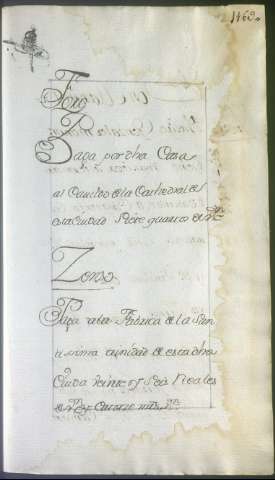 1160
Foro
Paga por dha Casa
al Cauildo de la Cathedral de
esta Ciudad Siete quartos de
Zenso
Paga a la Fabrica de la San
tissima trinidad de esta dha
Ciudad veinte y seis Reales